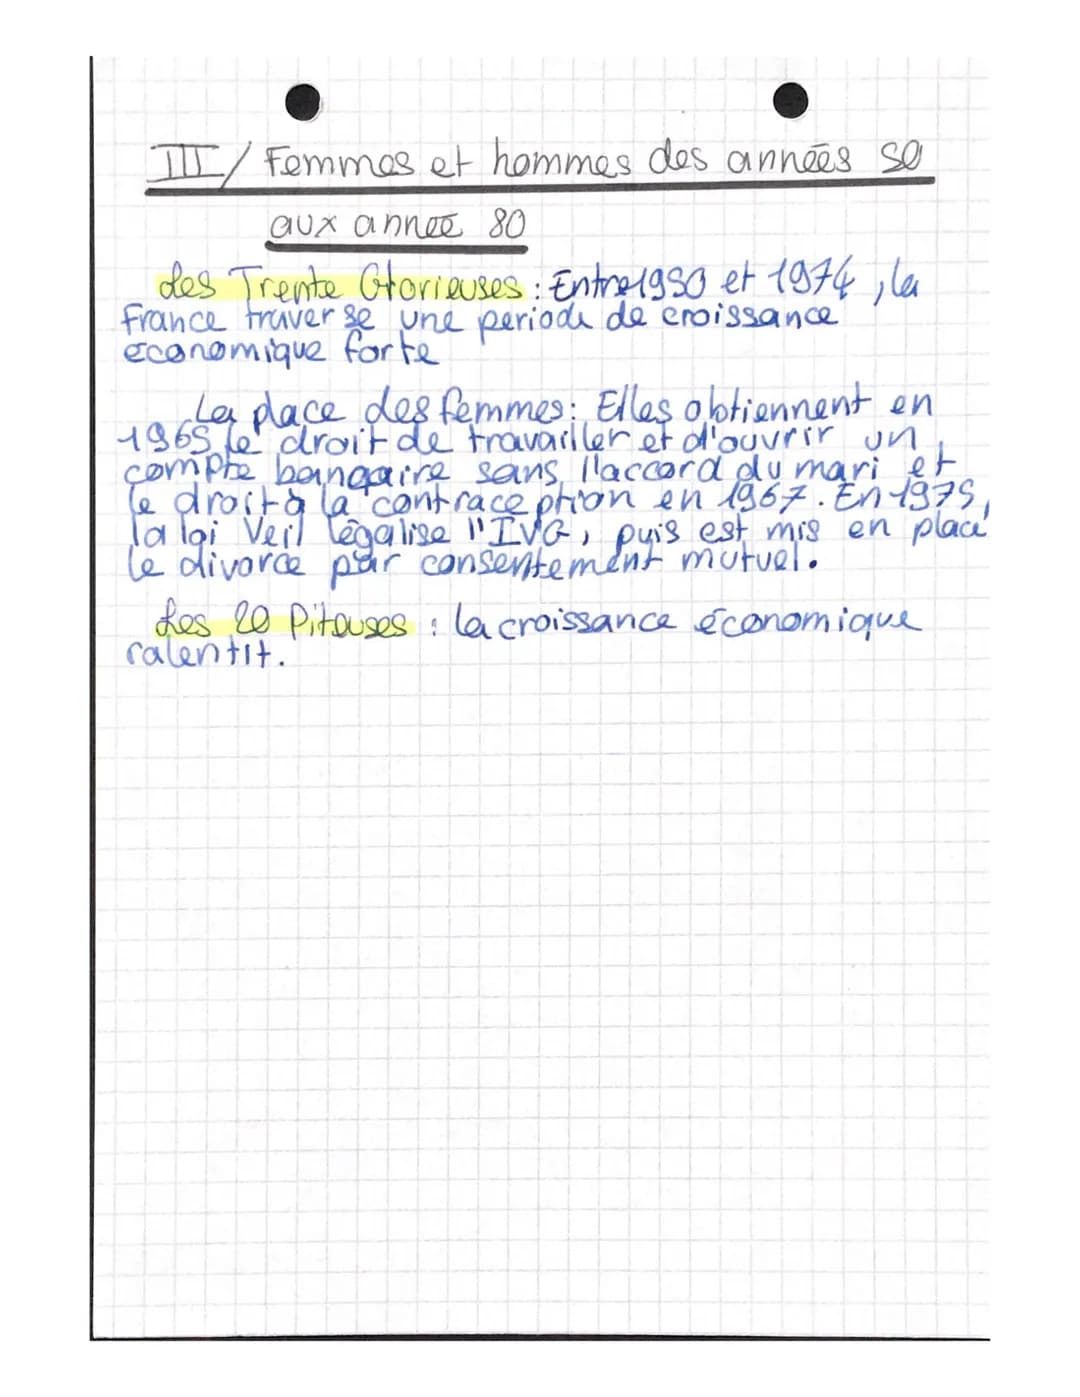 III/ Femmes et hommes des années 50
aux année 80
Les Trente Glorieuses : Entre 1950 et 1974, la
France traverse une periode de croissance
economique forte
La place des femmes : Elles obtiennent en
1965 le droit de travailler et d'ouvrir un
compte bancaire sans l'accord du mari et
le droit à la contraception en 1967. En 1975,
la loi Veil légalise l'IVG, puis est mis en place
le divorce par consentement mutuel.
Les 20 Piteuses : la croissance économique
ralentit.